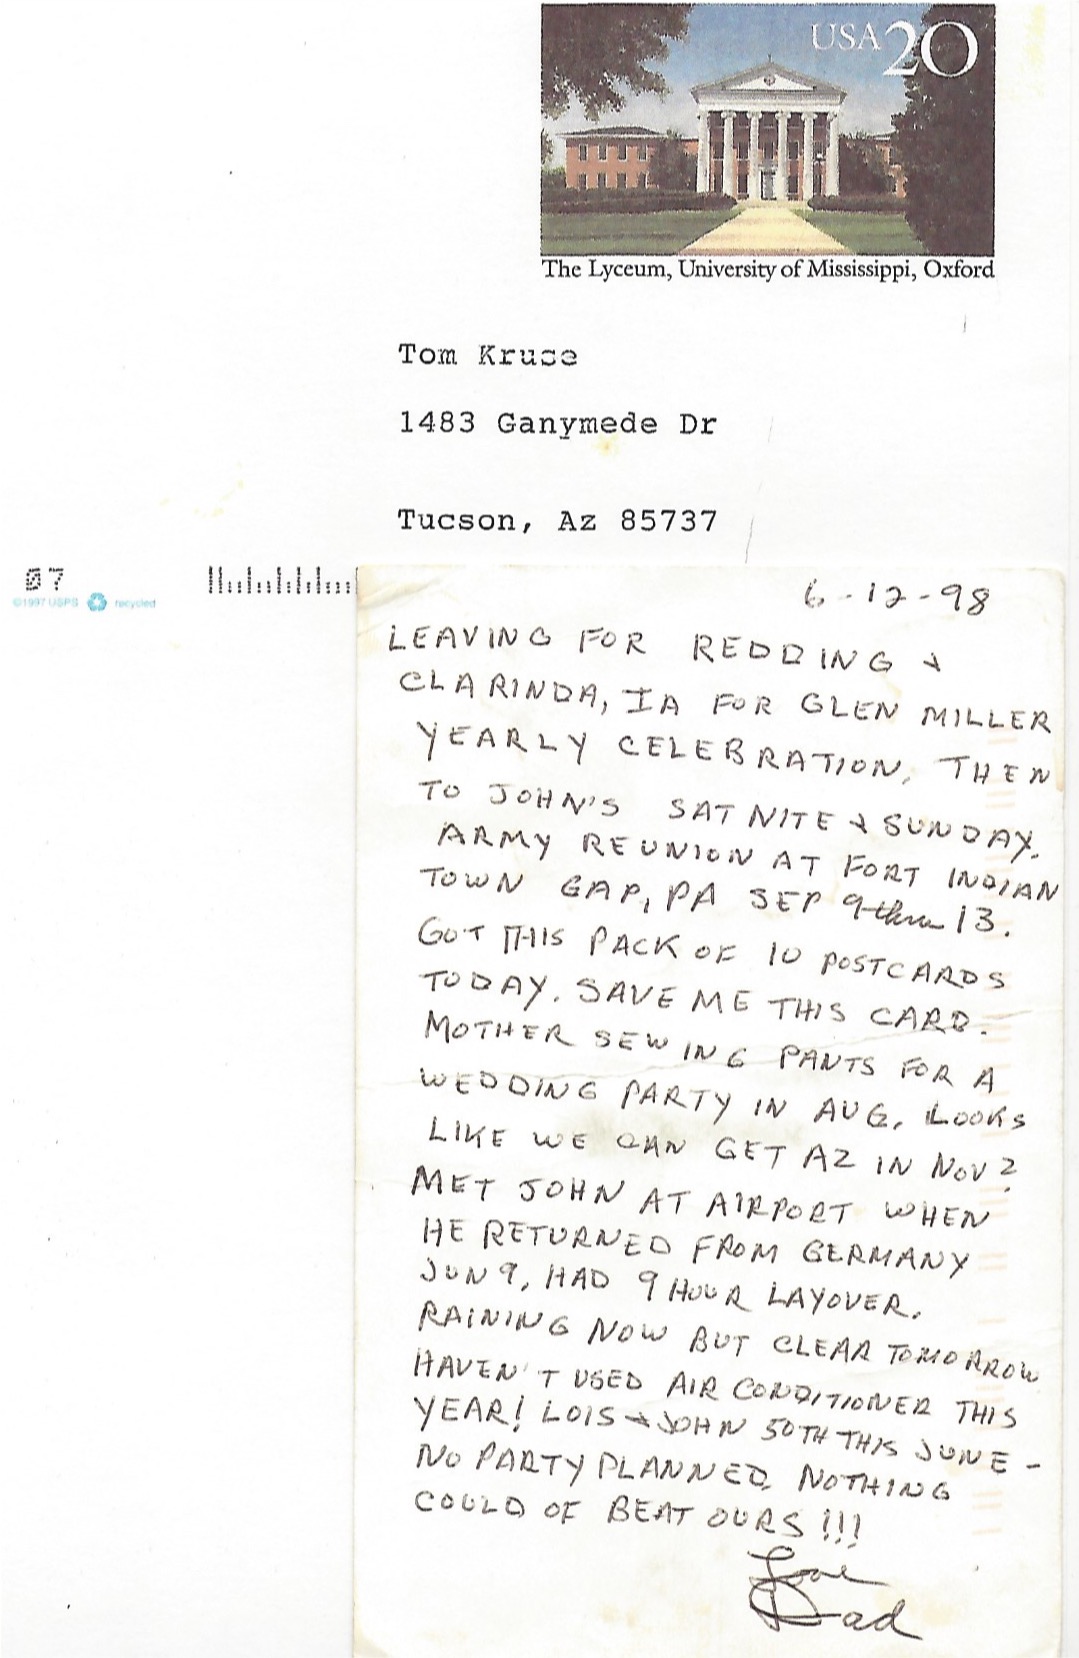 USA 20
The Lyceum, University of Mississippi, Oxford
Tom Kruse
1483 Ganymede Dr
Tucson, Az 85737
07
©1997 USPS recycled
6-12-98
LEAVING FOR REDDING &
CLARINDA, IA FOR GLEN MILLER
YEARLY CELEBRATION, THEN
TO JOHN'S SAT NITE & SUNDAY.
ARMY REUNION AT FORT INDIAN
TOWN GAP, PA SEP 9 thru 13.
GOT THIS PACK OF 10 POSTCARDS
TODAY. SAVE ME THIS CARD.
MOTHER SEWING PANTS FOR A
WEDDING PARTY IN AUG. LOOKS
LIKE WE CAN GET AZ IN NOV?
MET JOHN AT AIRPORT WHEN
HE RETURNED FROM GERMANY
JUN 9, HAD 9 HOUR LAYOVER.
RAINING NOW BUT CLEAR TOMORROW
HAVEN'T USED AIR CONDITIONER THIS
YEAR! LOIS & JOHN 50TH THIS JUNE -
NO PARTY PLANNED. NOTHING
COULD OF BEAT OURS!!!
Love
Dad